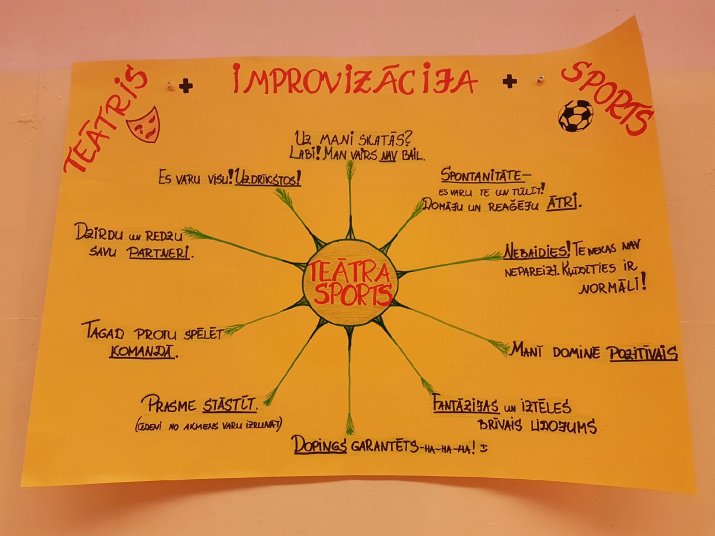 TEĀTRIS + IMPROVIZĀCIJA + SPORTS
UZ MANI SKATĀS?
LABI! MAN VAIRS NAV BAIL.
ES VARU VISU! UZDRĪKSTOS!
SPONTANITĀTE –
ES VARU TE UN TŪLĪT!
DOMĀJU UN REAĢĒJU ĀTRI.
DZIRDU UN REDZU
SAVU PARTNERI.
NEBAIDIES! TE NEKAS NAV
NEPAREIZI. KĻŪDĪTIES IR
NORMĀLI!
TEĀTRA
SPORTS
TAGAD PROTU SPĒLĒT
KOMANDĀ.
MANĪ DOMINĒ POZITĪVAIS
PRASME STĀSTĪT.
(ŪDENI NO AKMENS VARU IZRUNĀT)
FANTĀZIJAS UN IZTĒLES
BRĪVAIS LIDOJUMS
DOPINGS GARANTĒTS-HA-HA-HA! :)